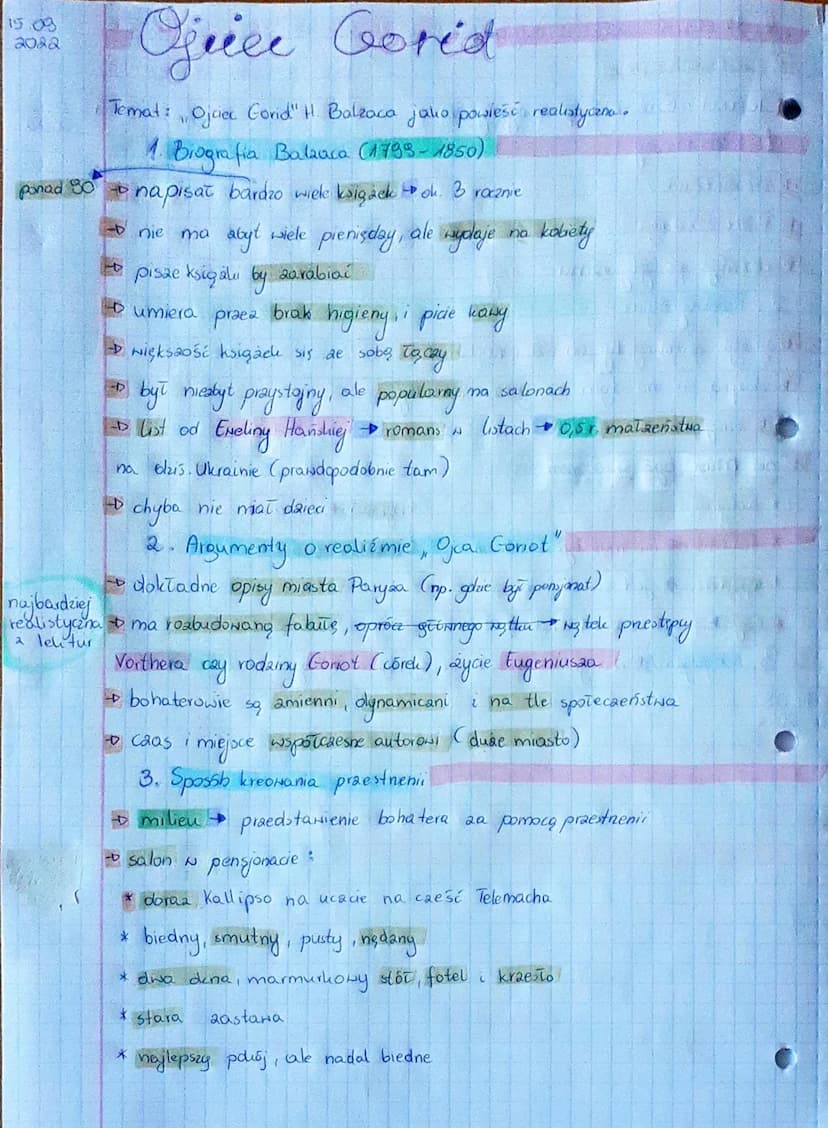 15.09
2022
Ojciec Goriot
Temat: „Ojciec Goriot" H. Balzaca jako powieść realistyczna.
1. Biografia Balzaca (1799-1850)
ponad 90
→ napisał bardzo wiele książek → ok. 3 rocznie
→ nie ma zbyt wiele pieniędzy, ale wydaje na kobiety
→ pisze książki by zarabiać
→ umiera przez brak higieny, i picie kawy
→ większość książek się ze sobą łączy
→ był niezbyt przystojny, ale popularny na salonach
→ list od Eweliny Hańskiej → romans w listach → 0,5 r. małżeństwa
na dziś. Ukrainie (prawdopodobnie tam)
→ chyba nie miał dzieci
2. Argumenty o realiźmie „Ojca Goriot"
→ dokładne opisy miasta Paryża (np. gdzie był pensjonat)
najbardziej
realistyczna
z lektur
→ ma rozbudowaną fabułę, oprócz głównego wątku → wątek przestępcy
Vorthera czy rodziny Goriot (córek), życie Eugeniusza
→ bohaterowie są zmienni, dynamiczni i na tle społeczeństwa
→ czas i miejsce współczesne autorowi (duże miasto)
3. Sposób kreowania przestrzeni
→ milieu → przedstawienie bohatera za pomocą przestrzeni
→ salon w pensjonacie:
* obraz Kallipso na uczcie na cześć Telemacha
* biedny, smutny, pusty, nędzny
* dwa okna, marmurkowy stół, fotel i krzesło
* stara zastawa
* najlepszy pokój, ale nadal biedne